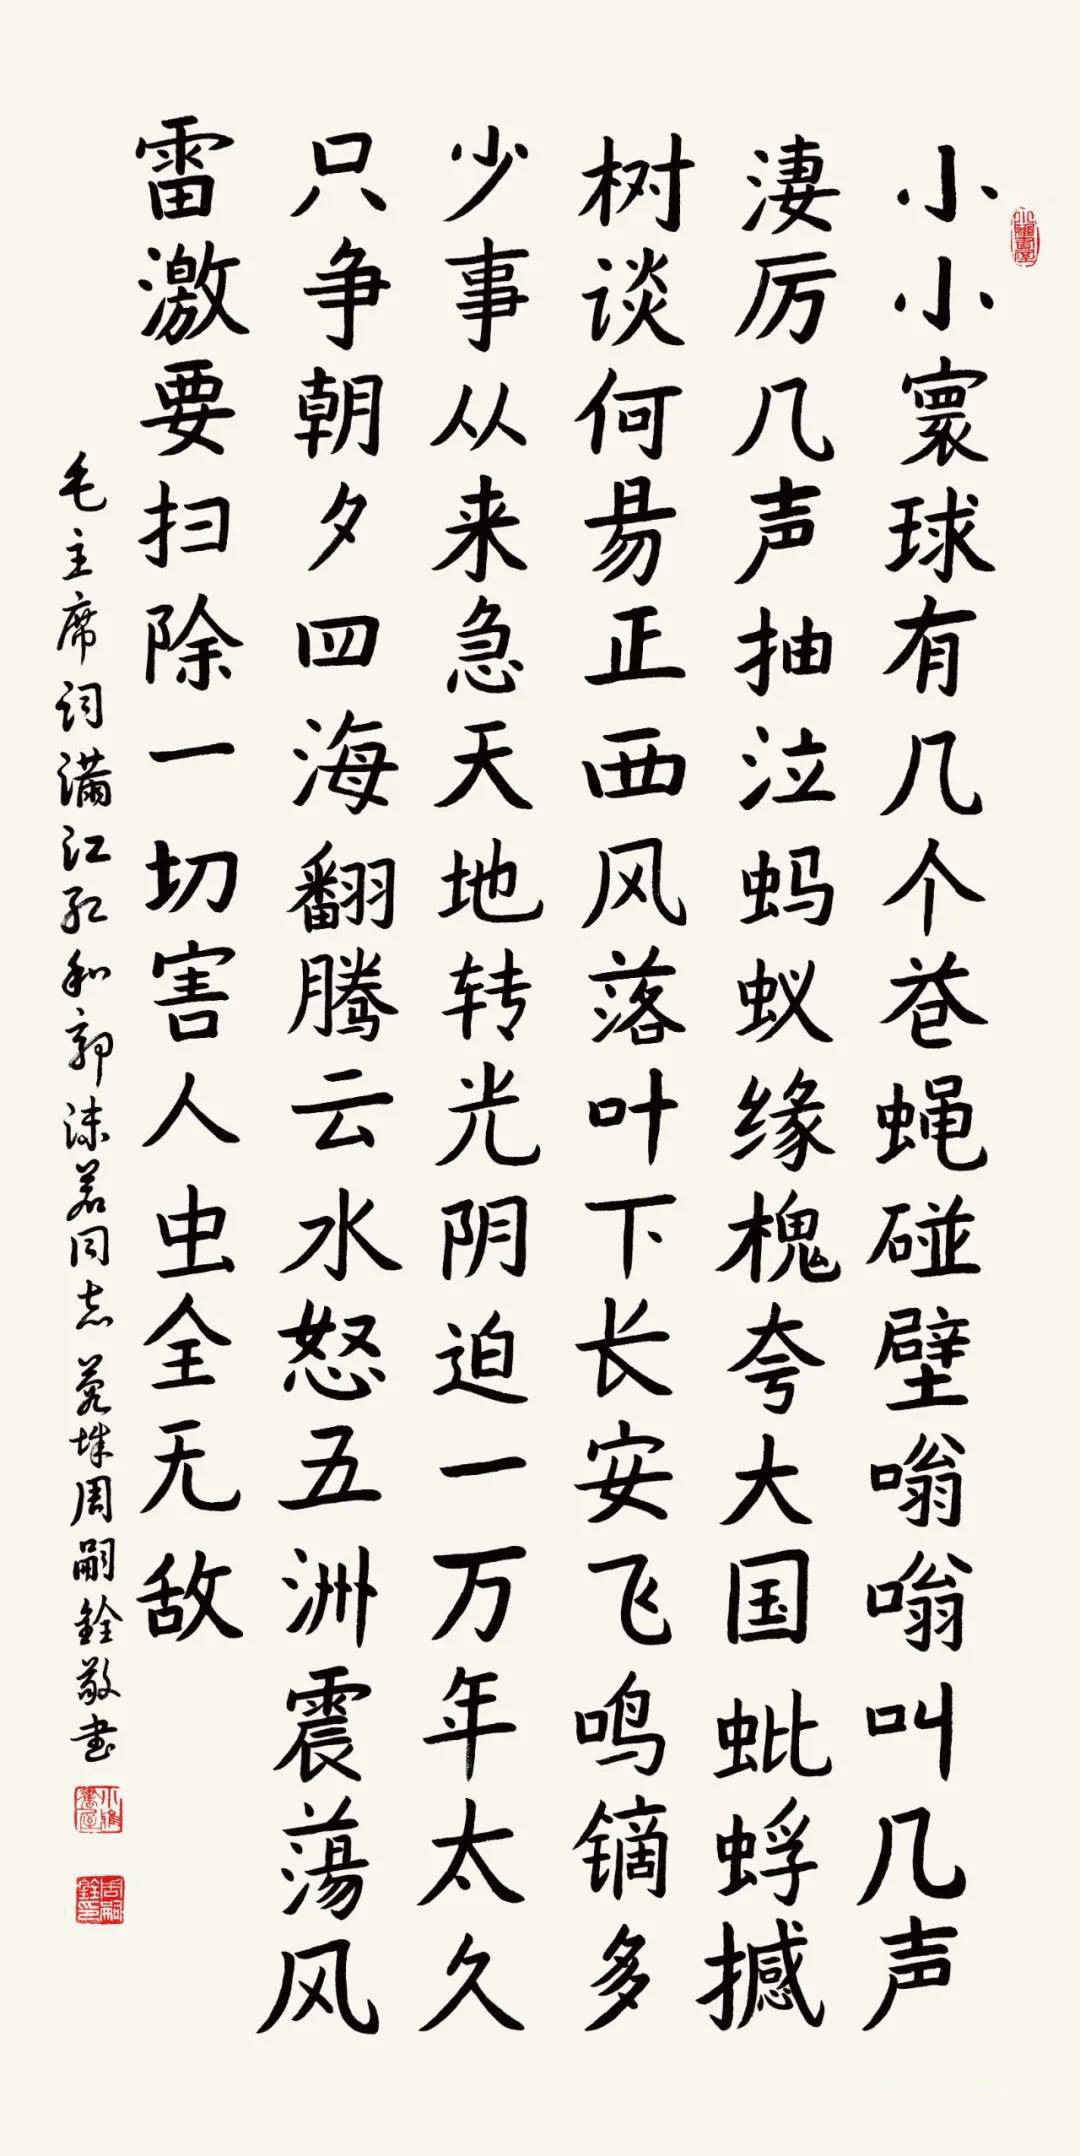 小小寰球有几个苍蝇碰壁嗡嗡叫几声
淒厉几声抽泣蚂蚁缘槐夸大国蚍蜉撼
树谈何易正西风落叶下长安飞鸣镝多
少事从来急天地转光阴迫一万年太久
只争朝夕四海翻腾云水怒五洲震蕩风
雷激要扫除一切害人虫全无敌
毛主席词满江红和郭沫若同志 周嗣銓敬书